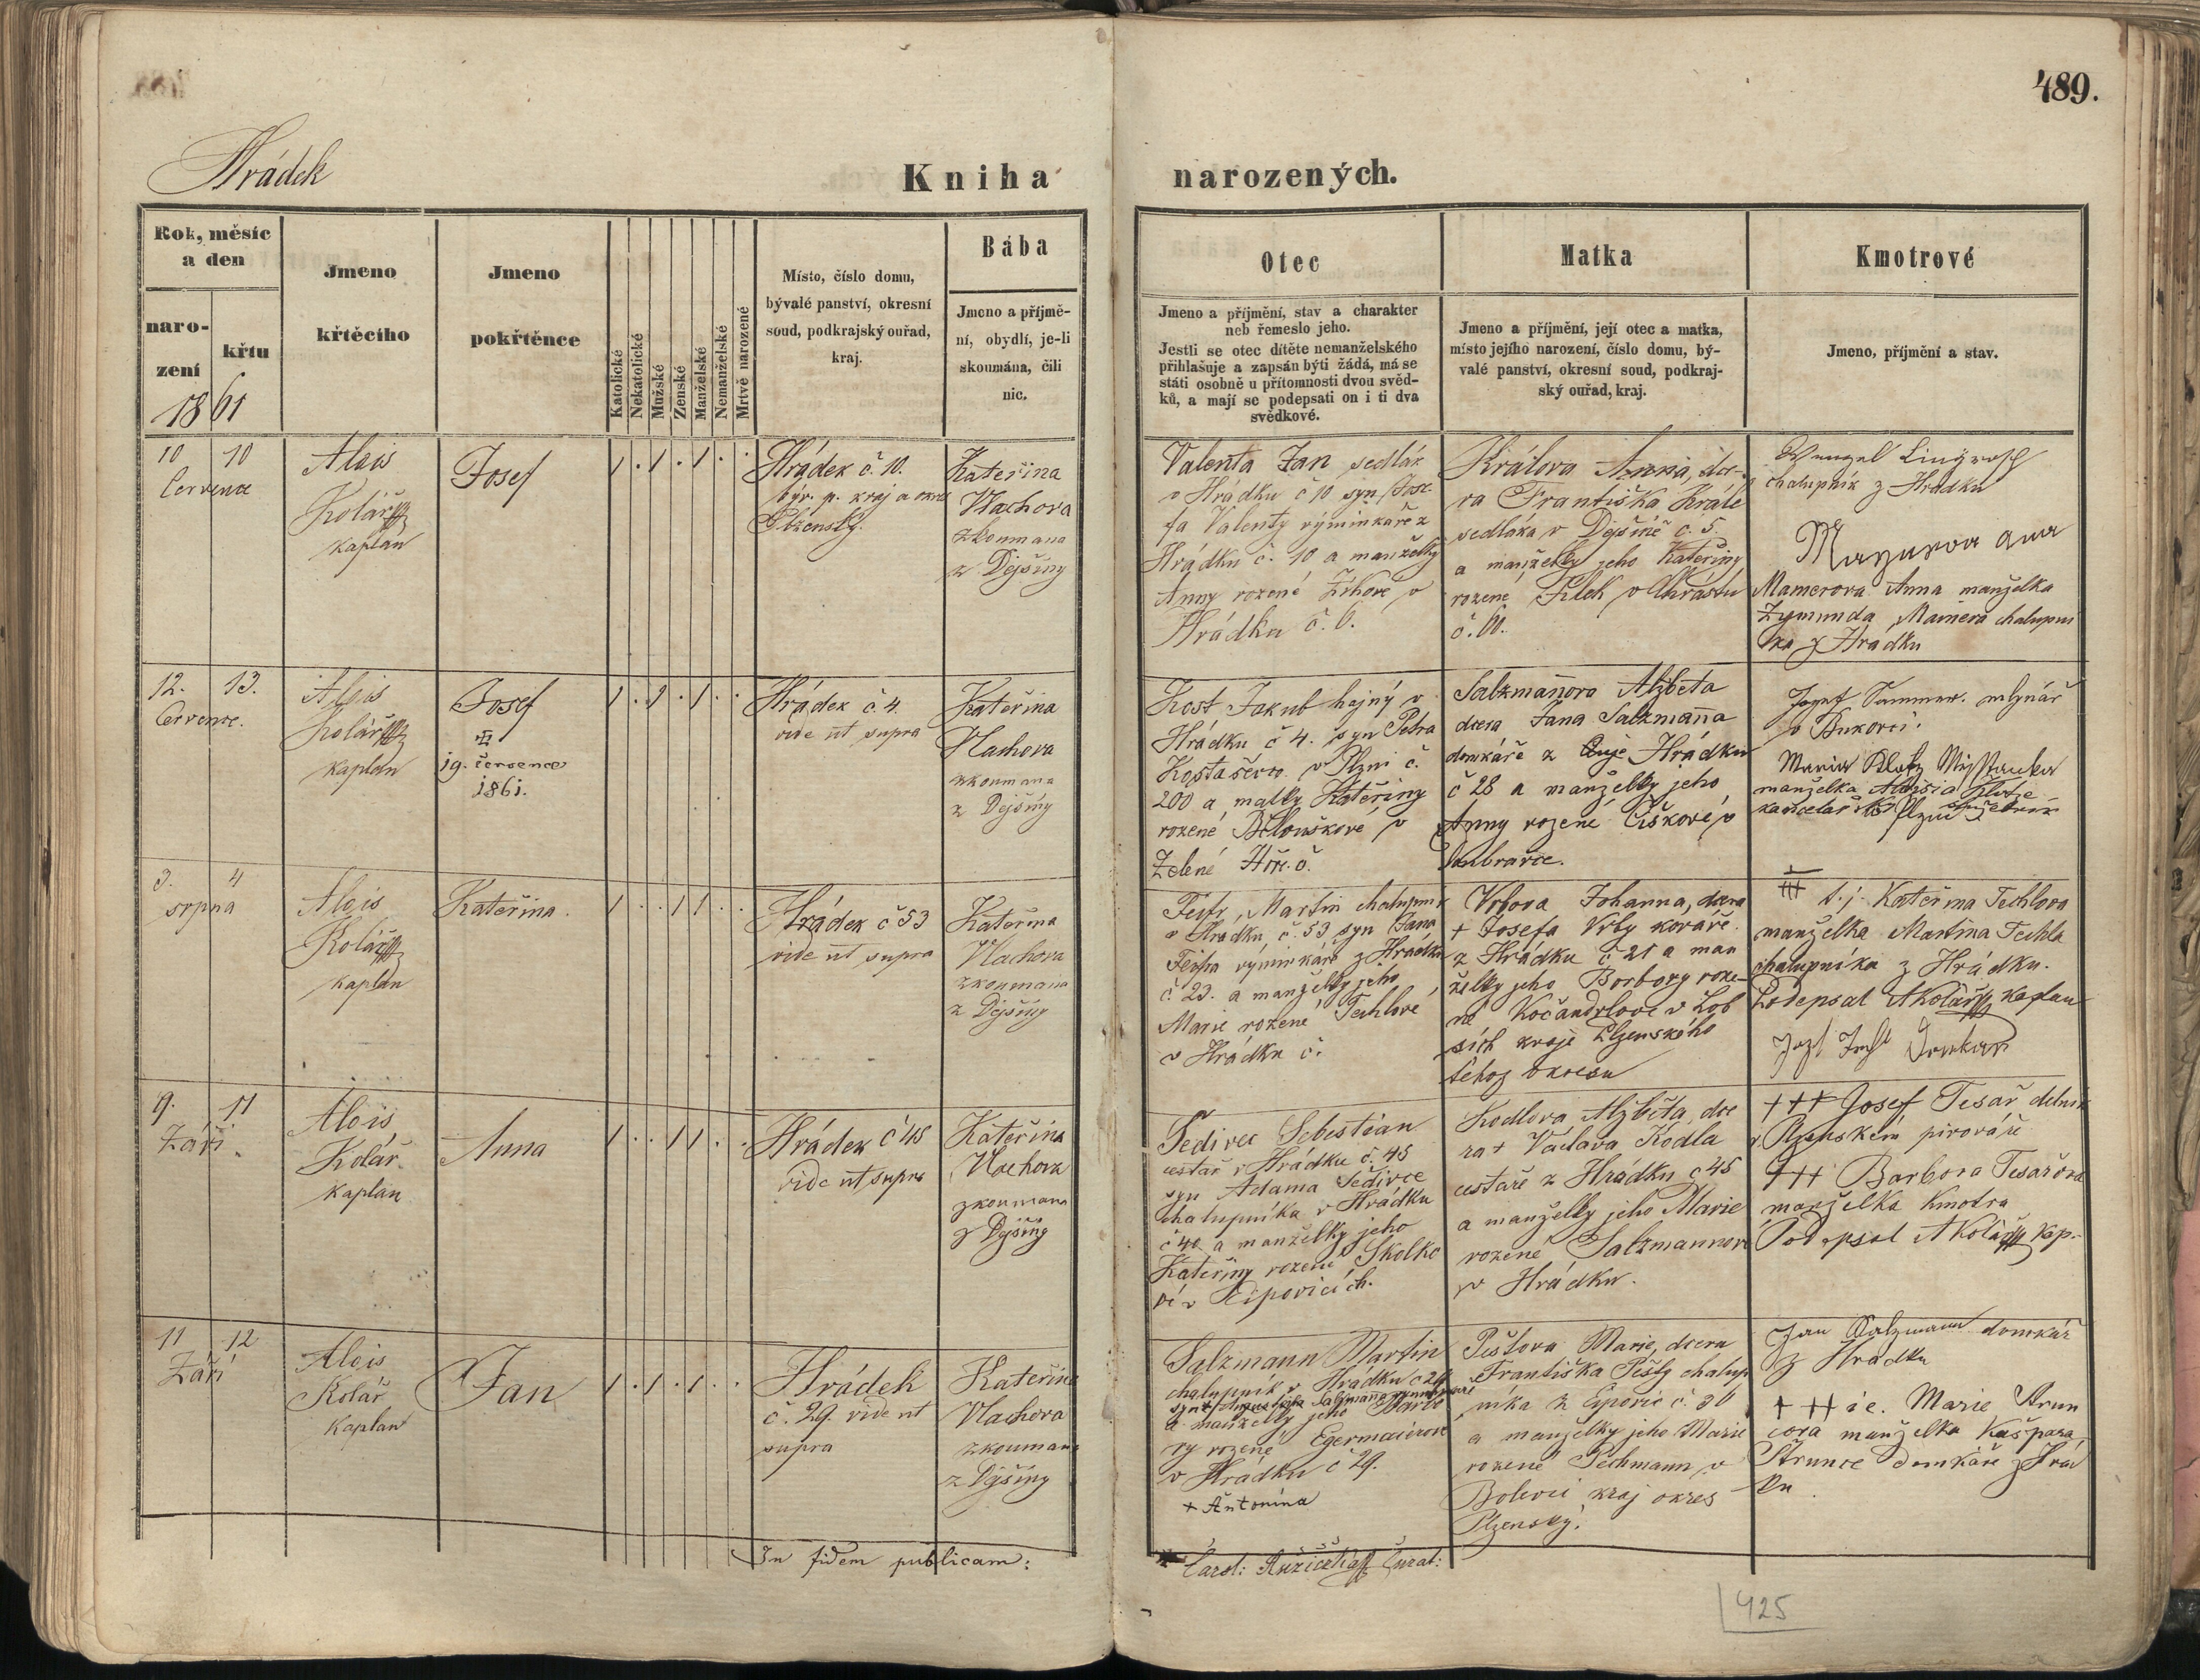 489.
Hrádek
Kniha narozených.
Rok, měsíc
a den
naro-
zení
křtu
1861
Jmeno
křtěcího
Jmeno
pokřtěnce
Katolické
Nekatolické
Mužské
Zenské
Manželské
Nemanželské
Mrtvě narozené
Místo, číslo domu,
bývalé panství, okresní
soud, podkrajský ouřad,
kraj.
Bába
Jmeno a příjmě-
ní, obydlí, je-li
skoumána, čili
nic.
Otec
Jmeno a příjmění, stav a charakter
neb řemeslo jeho.
Jestli se otec dítěte nemanželského
přihlašuje a zapsán býti žádá, má se
státi osobně u přítomnosti dvou svěd-
ků, a mají se podepsati on i ti dva
svědkové.
Matka
Jmeno a příjmění, její otec a matka,
místo jejího narození, číslo domu, bý-
valé panství, okresní soud, podkraj-
ský ouřad, kraj.
Kmotrové
Jmeno, příjmění a stav.
10 10
července
Alois
Kolář
kaplan
Josef
1 . 1 . 1 . .
Hrádek č. 10.
býv. p. kraj a okres
Plzenský.
Kateřina
Vlachova
zkoumana
z Dejšiny
Valenta Jan sedlák
v Hrádku č 10 syn Jose-
fa Valenty výminkáře z
Hrádku č. 10 a manželky
Anny rozené v
Hrádku č. 6.
Králova Anna, dce-
ra Františka Krále
sedláka v Dejšině č. 5
a manželky jeho Kateřiny
rozené v Chrástu
č.
Wenzel
chalupník z Hrádku
Mamerova Anna manželka
Zygmunda Mamera chalupni
ka z Hrádku
12. 13.
července.
Alois
Kolář
kaplan
Josef
19. července
1861.
1 . 1 . 1 . .
Hrádek č. 4.
vide ut supra
Kateřina
Vlachova
zkoumana
z Dejšiny
Kost Jakub hajný v
Hrádku č 4. syn Petra
Kosta v Plzni č.
200 a matky Kateřiny
rozené Běloušková v
Zelené č.
Salzmannova Alžběta
dcera Jana Salzmanna
domkáře z Hrádku
č 28 a manželky jeho
Anny rozené Čiškové v
Doubravce.
mlynář
v Bukovci.
Maria
manželka
v Plzni
3. 4
srpna
Alois
Kolář
kaplan
Kateřina.
1 . . 1 1 . .
Hrádek č 53
vide ut supra
Kateřina
Vlachova
zkoumana
z Dejšiny
Martin chalupník
v Hrádku č. 53 syn Jana
výminkáře z Hrádku
č. 23. a manželky jeho
Marie rozené Techlové
v Hrádku č.
Vrbova Johanna, dcera
+ Josefa Vrby kováře
z Hrádku č 21 a man
želky jeho Borbory roze-
né Kočandrlove v Lob
zích kraje Plzenského
téhož okresu
+++ t.j. Kateřina Techlova
manželka Martina Techla
chalupníka z Hrádku.
Podepsal AKolář kaplan
9. 11.
Září.
Alois
Kolář
kaplan
Anna
1 . . 1 1 . .
Hrádek č 45
vide ut supra
Kateřina
Vlachova
zkoumana
z Dejšiny
Šedivec Sebestian
cestař v Hrádku č. 45
syn Adama Šedivce
chalupníka v Hrádku
č 40 a manželky jeho
Kateřiny rozené Skolko
vé v Ejpovicích.
Kodlova Alžběta, dce
ra + Václava Kodla
cestaře z Hrádku č 45
a manželky jeho Marie
rozené Salzmannové
v Hrádku.
+++ Josef Tesař delník
v Plzenském pivováře
+++ Barbora Tesařova
manželka kmotra
Podepsal AKolář kap.
11 12
Září
Alois
Kolář
kaplan
Jan
1 . 1 . 1 . .
Hrádek
č. 29. vide ut
supra
Kateřina
Vlachova
zkoumana
z Dejšiny
Salzmann Martin
chalupník v Hrádku č 29
a manželky jeho Barbo
ry rozené Egermaierové
v Hrádku č 29.
+ Antonína
Peštova Marie, dcera
Františka Pešty chalup
níka z Ejpovic č 36
a manželky jeho Marie
rozené Pechmann v
Bolevci kraj okres
Plzenský.
Jan Salzmann domkář
z Hrádku
+++ i.e. Marie Strun
cova manželka Kašpara
Strunce domkáře z Hrád
ku
In fidem publicam:
Carol: Růžička Curat:
425